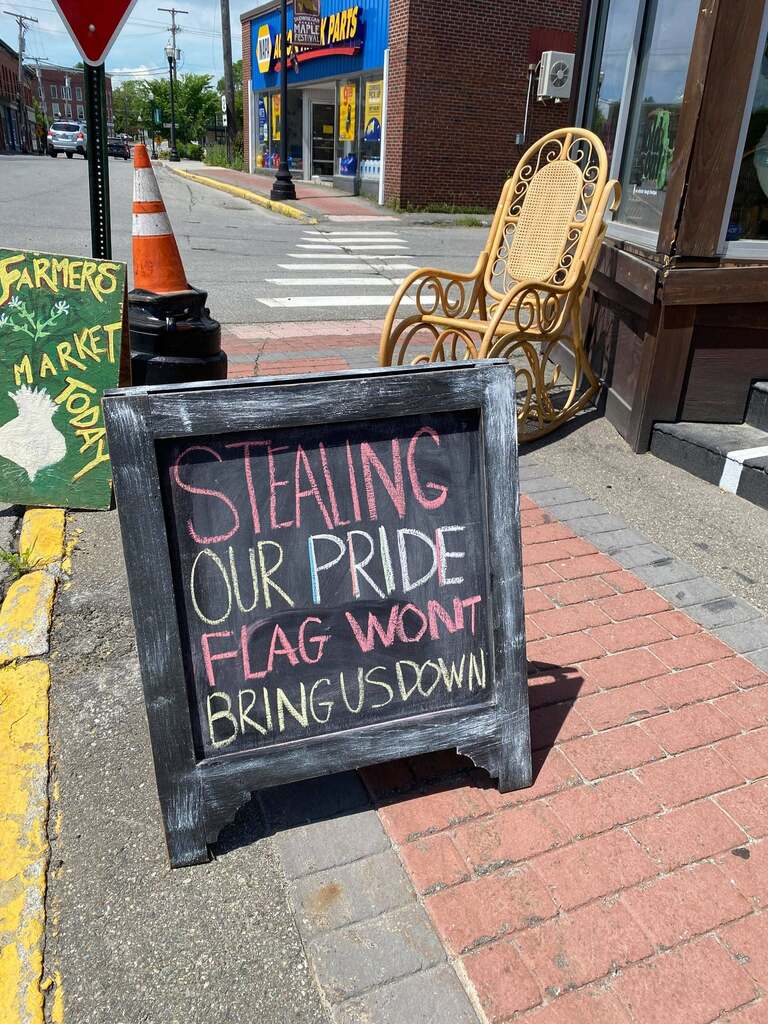 SKOWHEGAN
MAPLE
FESTIVAL
NAPA
PARTS
FARMERS
MARKET
TODAY
STEALING
OUR PRIDE
FLAG WONT
BRING US DOWN